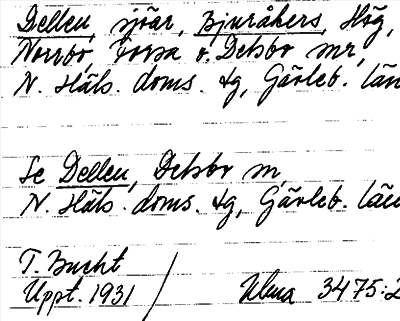 Dellen, sjöar, Bjuråkers, Hög,
Norrbo, Forsa o. Delsbo snr,
N. Häls. doms. tg, Gävleb. län
Se Dellen, Delsbo sn,
N. Häls. doms. tg, Gävleb. län
T. Bucht
Uppt. 1931 / Ulma 3475:2